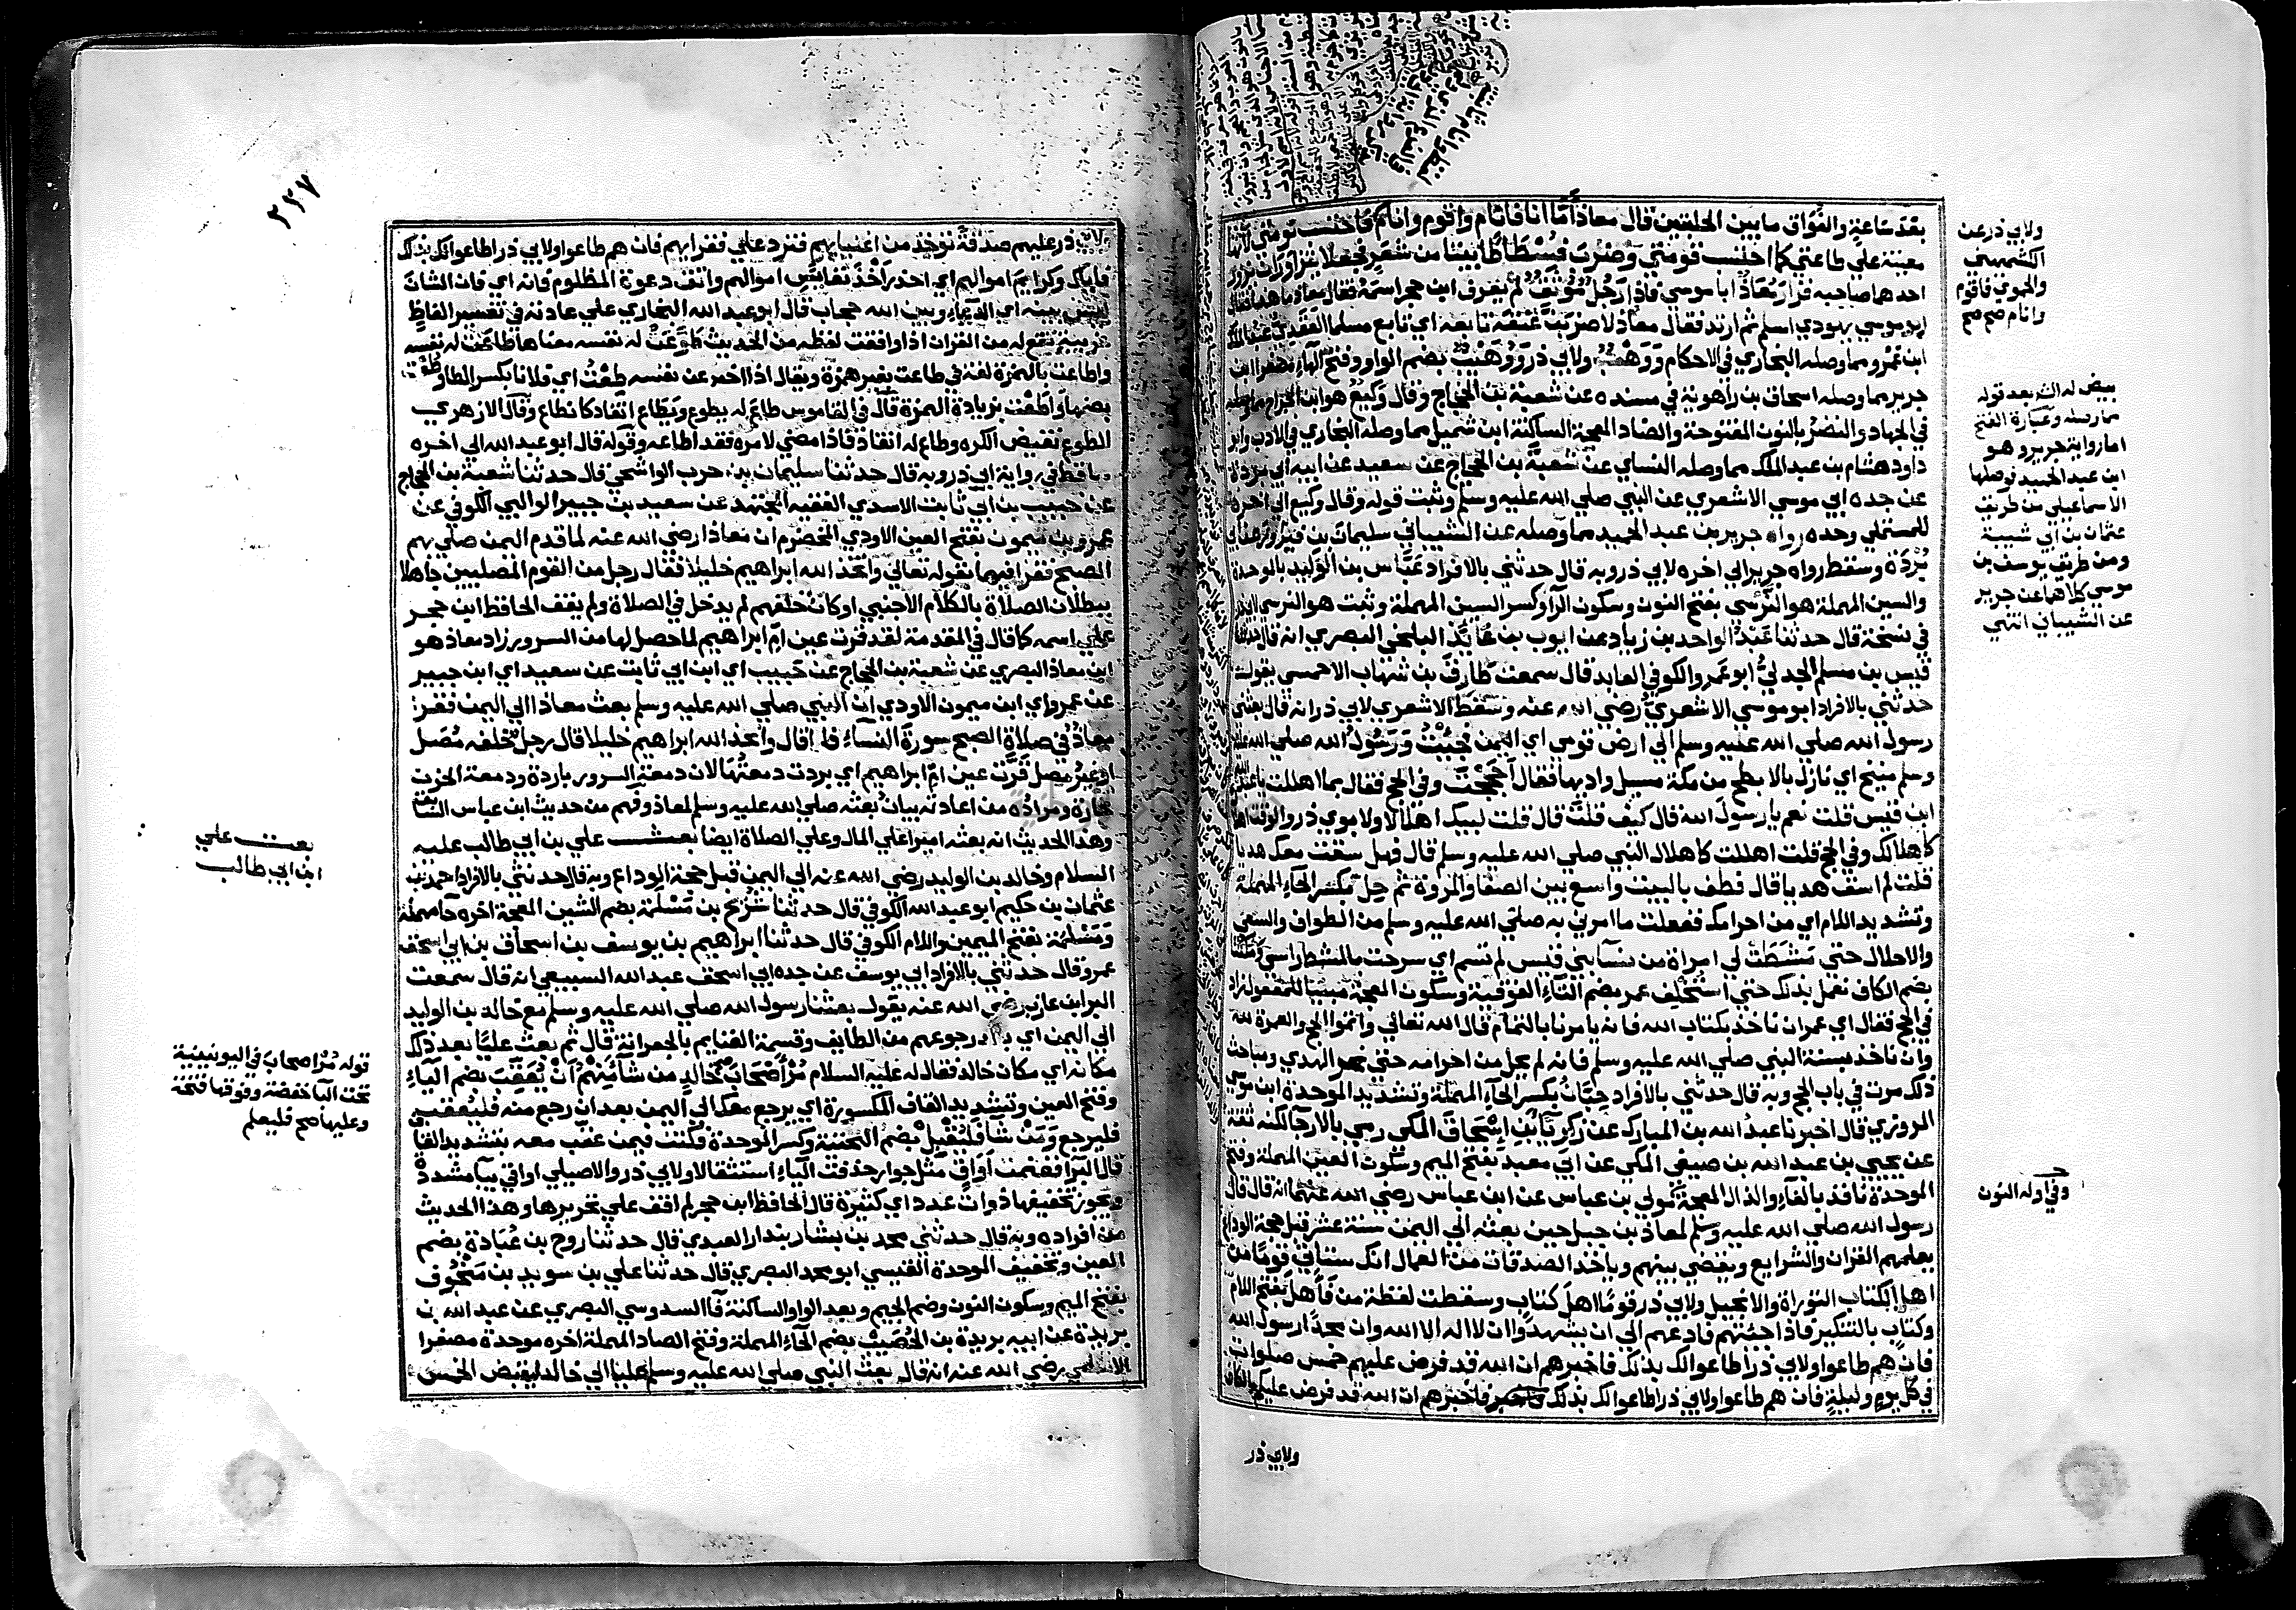 بعد ساعة والفواق ما بين الحلبتين قال معاذ أما انا فانام واقوم وانام فاحتسب نومتي لانها
معينة علي طاعتي كما احتسب قومتي وضرب فسطاطا بيتا من شعر فجعلا يتزاوران يزور
احدهما صاحبه فزار معاذ ابا موسي فاذا رجل موثق لم يعرف ابن حجر اسمه فقال معاذ ما هذا فقال
ابو موسي يهودي اسلم ثم ارتد فقال معاذ لاضربن عنقه تابعه اي تابع مسلما العقدي عبد الملك
ابن عمرو مما وصله البخاري في الاحكام ووهب ولابي ذر ووهيب بضم الواو وفتح الهاء مصغرا ابن
جرير مما وصله اسحاق بن راهوية في مسنده عن شعبة بن الحجاج وقال وكيع هو ابن الجراح مما وصله
في الجهاد والنضر بالنون المفتوحة والضاد المعجمة الساكنة ابن شميل مما وصله البخاري في الادب وابو
داود هشام بن عبد الملك مما وصله النساي عن شعبة بن الحجاج عن سعيد عن ابيه ابي بردة
عن جده ابي موسي الاشعري عن النبي صلي الله عليه وسلم وثبت قوله وقال وكيع الي اخره
للمستملي وحده رواه جرير بن عبد الحميد مما وصله عن الشيباني سليمان بن فيروز عن ابي
بردة وسقط رواه جرير الي اخره لابي ذر وبه قال حدثني بالافراد عباس بن الوليد بالموحدة
والسين المهملة هو النرسي بفتح النون وسكون الرا وكسر السين المهملة وثبت هو النرسي لابي ذر
في نسخة قال حدثنا عبد الواحد بن زياد عن ايوب بن عايذ البلخي البصري انه قال حدثنا
قيس بن مسلم الجدلي ابو عمرو الكوفي العابد قال سمعت طارق بن شهاب الاحمسي يقول
حدثني بالافراد ابو موسي الاشعري رضي الله عنه وسقط الاشعري لابي ذر انه قال بعثني
رسول الله صلي الله عليه وسلم الي ارض قومي اي اليمن فجئت ورسول الله صلي الله عليه
وسلم منيخ اي نازل بالابطح من مكة مسيل واديها فقال احججت وفي الحج فقال بما اهللت يا عبد الله
ابن قيس قلت نعم يا رسول الله قال كيف قلت قال قلت لبيك اهلالا ولابوي ذر والوقت اهلال
كاهلالك وفي الحج قلت اهللت كاهلال النبي صلي الله عليه وسلم قال فهل سقت معك هديا
قلت لم اسق هديا قال فطف بالبيت واسع بين الصفا والمروة ثم حل بكسر الحاء المهملة
وتشديد اللام اي من احرامك ففعلت ما امرني به صلي الله عليه وسلم من الطواف والسعي
والاحلال حتي مشطت لي امراة من نسآ بني قيس لم تسم اي سرحت بالمشط راسي ومكثنا
بضم الكاف نعمل بذلك حتي استخلف عمر بضم التاء الفوقية وسكون المعجمة مبنيا للمفعول زاد
في الحج فقال اي عمر ان ناخذ بكتاب الله فانه يامرنا بالتمام قال الله تعالي واتموا الحج والعمرة لله
وان ناخذ بسنة النبي صلي الله عليه وسلم فانه لم يحل من احرامه حتي نحر الهدي ومباحث
ذلك مرت في باب الحج وبه قال حدثني بالافراد حبان بكسر الحآء المهملة وتشديد الموحدة ابن موسي
المروزي قال اخبرنا عبد الله بن المبارك عن زكريا بن اسحاق المكي رمي بالارجآ لكنه ثقة
عن يحيي بن عبد الله بن صيفي المكي عن ابي معبد بفتح الميم وسكون العين المهملة وفتح
الموحدة نافذ بالفآء والذال المعجمة مولي بن عباس عن ابن عباس رضي الله عنهما انه قال قال
رسول الله صلي الله عليه وسلم لمعاذ بن جبل حين بعثه الي اليمن سنة عشر قبل حجة الوداع
يعلمهم القران والشرايع ويقضي بينهم وياخذ الصدقات من العمال انك ستاتي قوما من
اهل الكتاب التوراة والانجيل ولابي ذر قوما اهل كتاب وسقطت لفظة من فاهل بفتح اللام
وكتاب بالتنكير فاذا جئتهم فادعهم الي ان يشهدوا ان لا اله الا الله وان محمدا رسول الله
فان هم طاعوا ولابي ذر اطاعوا لك بذلك فاخبرهم ان الله قد فرض عليهم خمس صلوات
في كل يوم وليلة فان هم طاعوا ولابي ذر اطاعوا لك بذلك فاخبرهم ان الله قد فرض عليكم بالكاف
ولابي ذر
ولابي ذر عن
الكشميهني
والحموي فاقوم
وانام صح صح
بيض له الش بعد قوله
مما وصله وعبارة الفتح
اما رواية جرير وهو
ابن عبد الحميد فوصلها
الاسماعيلي من طريق
عثمان بن ابي شيبة
ومن طريق يوسف بن
موسي كلاهما عن جرير
عن الشيباني انتهي
وفي اوله النون
٢٢٧
ولابي ذر عليهم صدقة توخذ من اغنيايهم فترد علي فقرايهم فان هم طاعوا ولابي ذر اطاعوا لك بذلك
فاياك وكرايم اموالهم اي احذر اخذ نفايس اموالهم واتق دعوة المظلوم فانه اي فان الشان
ليس بينه اي الدعاء وبين الله حجاب قال ابو عبد الله البخاري علي عادته في تفسير الفاظ
غريبة تقع له من القران اذا وافقت لفظه من الحديث طوعت له نفسه معناها طاعت له نفسه
واطاعت بالهمزة لغة في طاعت بغير همزة ويقال اذا اخبر عن نفسه طعت اي فلانا بكسر الطا وطعت
بضمها واطعت بزيادة الهمزة قال في القاموس طاع له يطوع ويطاع انقاد كانطاع وقال الازهري
الطوع نقيض الكره وطاع له انقاد فاذا مضي لامره فقد اطاعه وقوله قال ابو عبد الله الي اخره
ساقط في رواية ابي ذر وبه قال حدثنا سليمان بن حرب الواشحي قال حدثنا شعبة بن الحجاج
عن حبيب بن ابي ثابت الاسدي الفقيه المجتهد عن سعيد بن جبير الوالبي الكوفي عن
عمرو بن ميمون بفتح العين الاودي المخضرم ان معاذا رضي الله عنه لما قدم اليمن صلي بهم
الصبح فقرا فيها بقوله تعالي واتخذ الله ابراهيم خليلا فقال رجل من القوم المصليين جاهلا
ببطلان الصلاة بالكلام الاجنبي او كان خلفهم لم يدخل في الصلاة ولم يقف الحافظ ابن حجر
علي اسمه كما قال في المقدمة لقد قرت عين ام ابراهيم لما حصل لها من السرور زاد معاذ هو
ابن معاذ البصري عن شعبة بن الحجاج عن حبيب اي ابن ابي ثابت عن سعيد اي ابن جبير
عن عمرو اي ابن ميمون الاودي ان النبي صلي الله عليه وسلم بعث معاذا الي اليمن فقرا
معاذ في صلاة الصبح سورة النساء فلما قال واتخذ الله ابراهيم خليلا قال رجل خلفه مصل
او غير مصل قرت عين ام ابراهيم اي بردت دمعتها لان دمعة السرور باردة ودمعة الحزن
حارة ومراده من اعادته بيان بعثه صلي الله عليه وسلم لمعاذ وفهم من حديث ابن عباس السابق
وهذا الحديث انه بعثه اميرا علي المال وعلي الصلاة ايضا بعث علي بن ابي طالب عليه
السلام وخالد بن الوليد رضي الله عنه الي اليمن قبل حجة الوداع وبه قال حدثني بالافراد احمد بن
عثمان بن حكيم ابو عبد الله الكوفي قال حدثنا شريح بن مسلمة بضم الشين المعجمة اخره حا مهملة
ومسلمة بفتح الميمين واللام الكوفي قال حدثنا ابراهيم بن يوسف بن اسحاق بن ابي اسحق
عمرو قال حدثني بالافراد ابي يوسف عن جده ابي اسحق عبد الله السبيعي انه قال سمعت
البرا بن عازب رضي الله عنه يقول بعثنا رسول الله صلي الله عليه وسلم مع خالد بن الوليد
الي اليمن اي بعد رجوعهم من الطايف وقسمة الغنايم بالجعرانة قال ثم بعث عليا بعد ذلك
مكانه اي مكان خالد فقال له عليه السلام مر اصحاب خالد من شآ منهم ان يعقب بضم الياء
وفتح العين وتشديد القاف المكسورة اي يرجع معك الي اليمن بعد ان رجع منه فليعقب
فليرجع ومن شا فليقبل بضم التحتية وكسر الموحدة فكنت فيمن عقب معه بتشديد القا
قال البرا فغنمت اواق مثل جوار حذفت الياء استثقالا ولابي ذر والاصيلي اواقي بيآ مشددة
ويجوز تخفيفها ذوات عدد اي كثيرة قال الحافظ ابن حجر لم اقف علي تحريرها وهذا الحديث
من افراده وبه قال حدثني محمد بن بشار بندار العبدي قال حدثنا روح بن عبادة بضم
العين وتخفيف الموحدة القيسي ابو محمد البصري قال حدثنا علي بن سويد بن منجوف
بفتح الميم وسكون النون وضم الجيم وبعد الواو الساكنة فآ السدوسي البصري عن عبد الله بن
بريدة عن ابيه بريدة بن الحصيب بضم الحاء المهملة وفتح الصاد المهملة اخره موحدة مصغرا
الاسلمي رضي الله عنه انه قال بعث النبي صلي الله عليه وسلم عليا الي خالد ليقبض الخمس
بعث علي
ابن ابي طالب
قوله مر اصحاب في اليونينية
تحت البا خفضة وفوقها فتحة
وعليها صح فليعلم